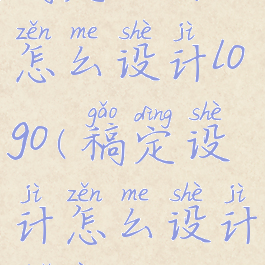 zěn me shè jì
怎么设计lo
gǎo dìng shè
go(稿定设
jì zěn me shè jì
计怎么设计